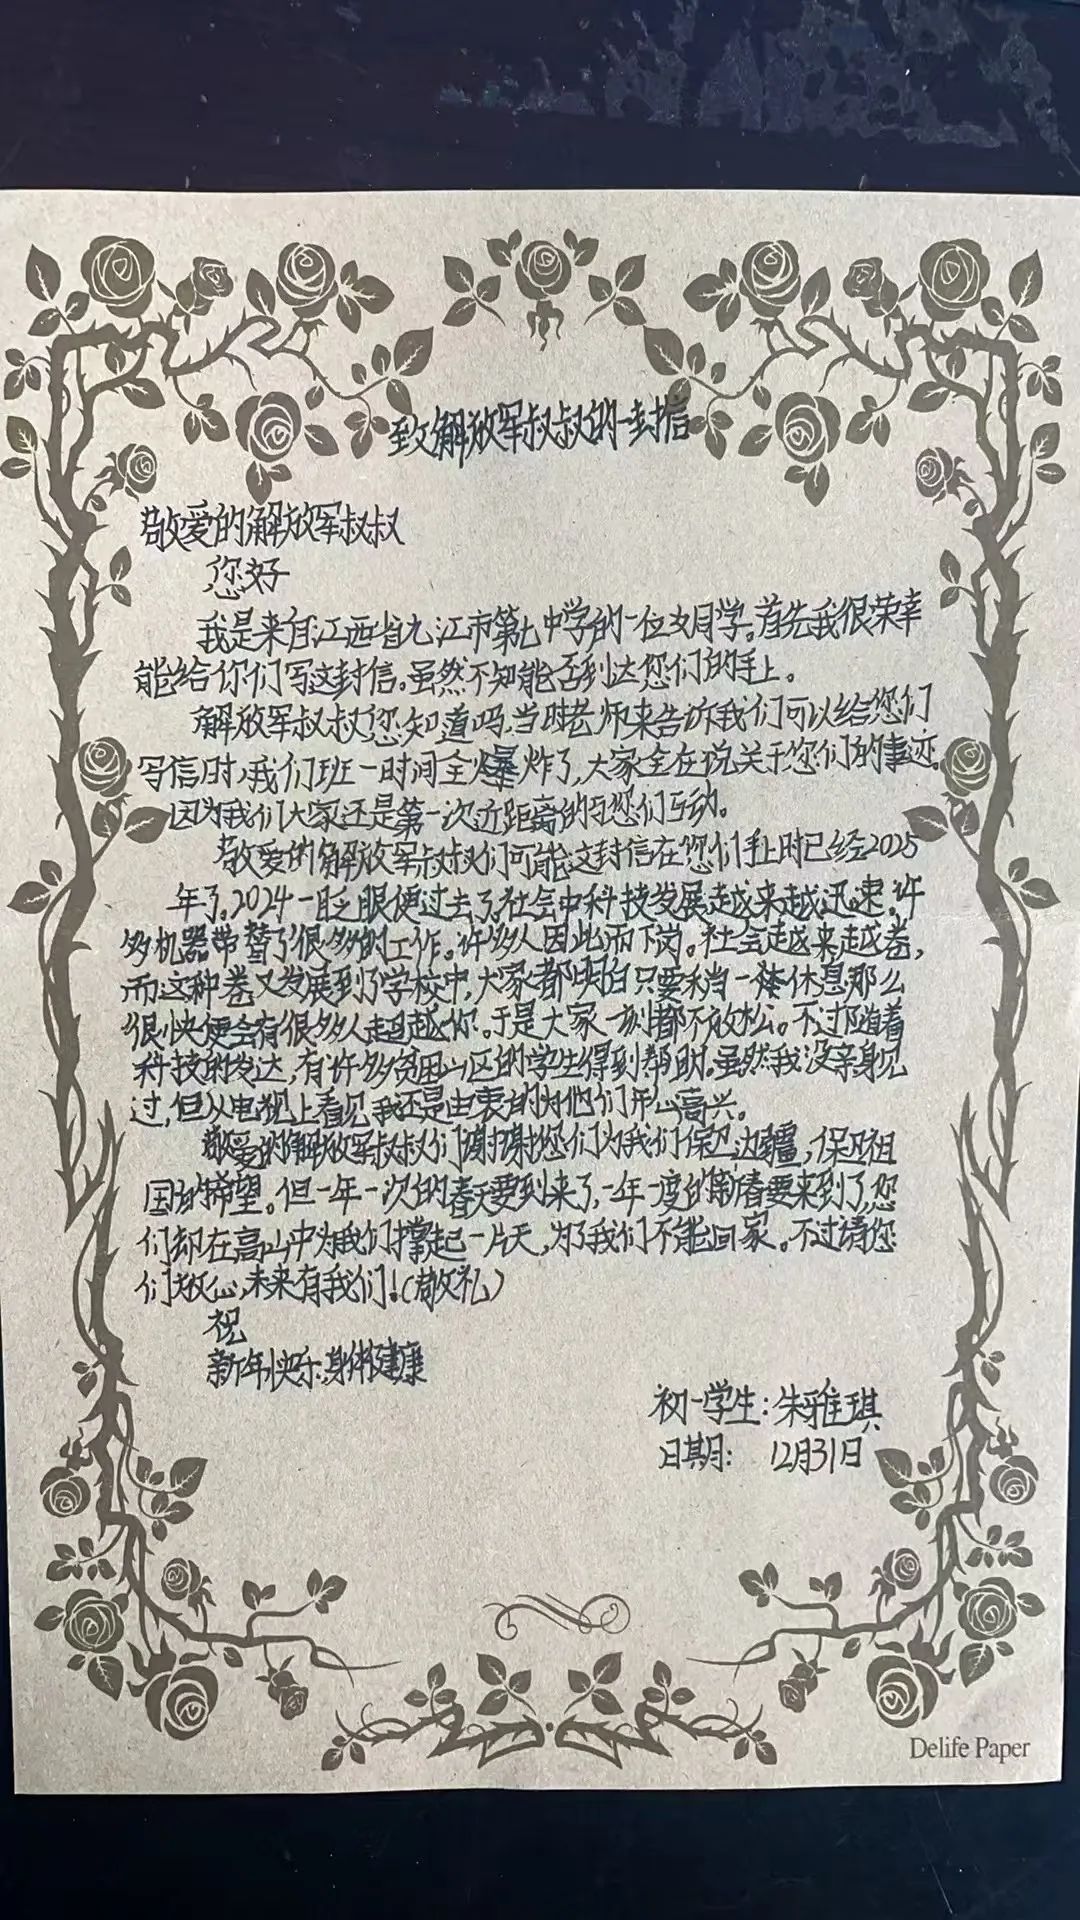 致解放军叔叔的一封信
敬爱的解放军叔叔
您好
我是来自江西省九江市第七中学的一位女同学。首先我很荣幸
能给你们写这封信。虽然不知能否到达您们的手上。
解放军叔叔您知道吗,当时老师来告诉我们可以给您们
写信时,我们班一时间全爆炸了,大家全在说关于您们的事迹。
因为我们大家还是第一次近距离的与您们互动。
敬爱的解放军叔叔们可能这封信在您们手上时已经2025
年了。2024一眨眼便过去了,社会中科技发展越来越迅速。许
多机器带替了很多的工作。许多人因此而下岗。社会越来越卷,
而这种卷又发展到了学校中,大家都明白只要稍当一休息那么
很快便会有很多人超越你。于是大家一刻都不放松。不过随着
科技的发达,有许多贫困山区的学生得到帮助。虽然我没亲身见
过,但从电视上看见我还是由衷的为他们形心高兴。
敬爱的解放军叔叔们谢谢您们为我们保卫边疆,保卫祖
国的希望。但一年一次的春天要到来了,一年一度的新春要来到了,您
们却在高山中为我们撑起一片天,为了我们不能回家。不过请您
们放心,未来有我们!(敬礼)
祝
新年快乐,身体健康
初一学生:朱雅琪
日期: 12月31日
Delife Paper